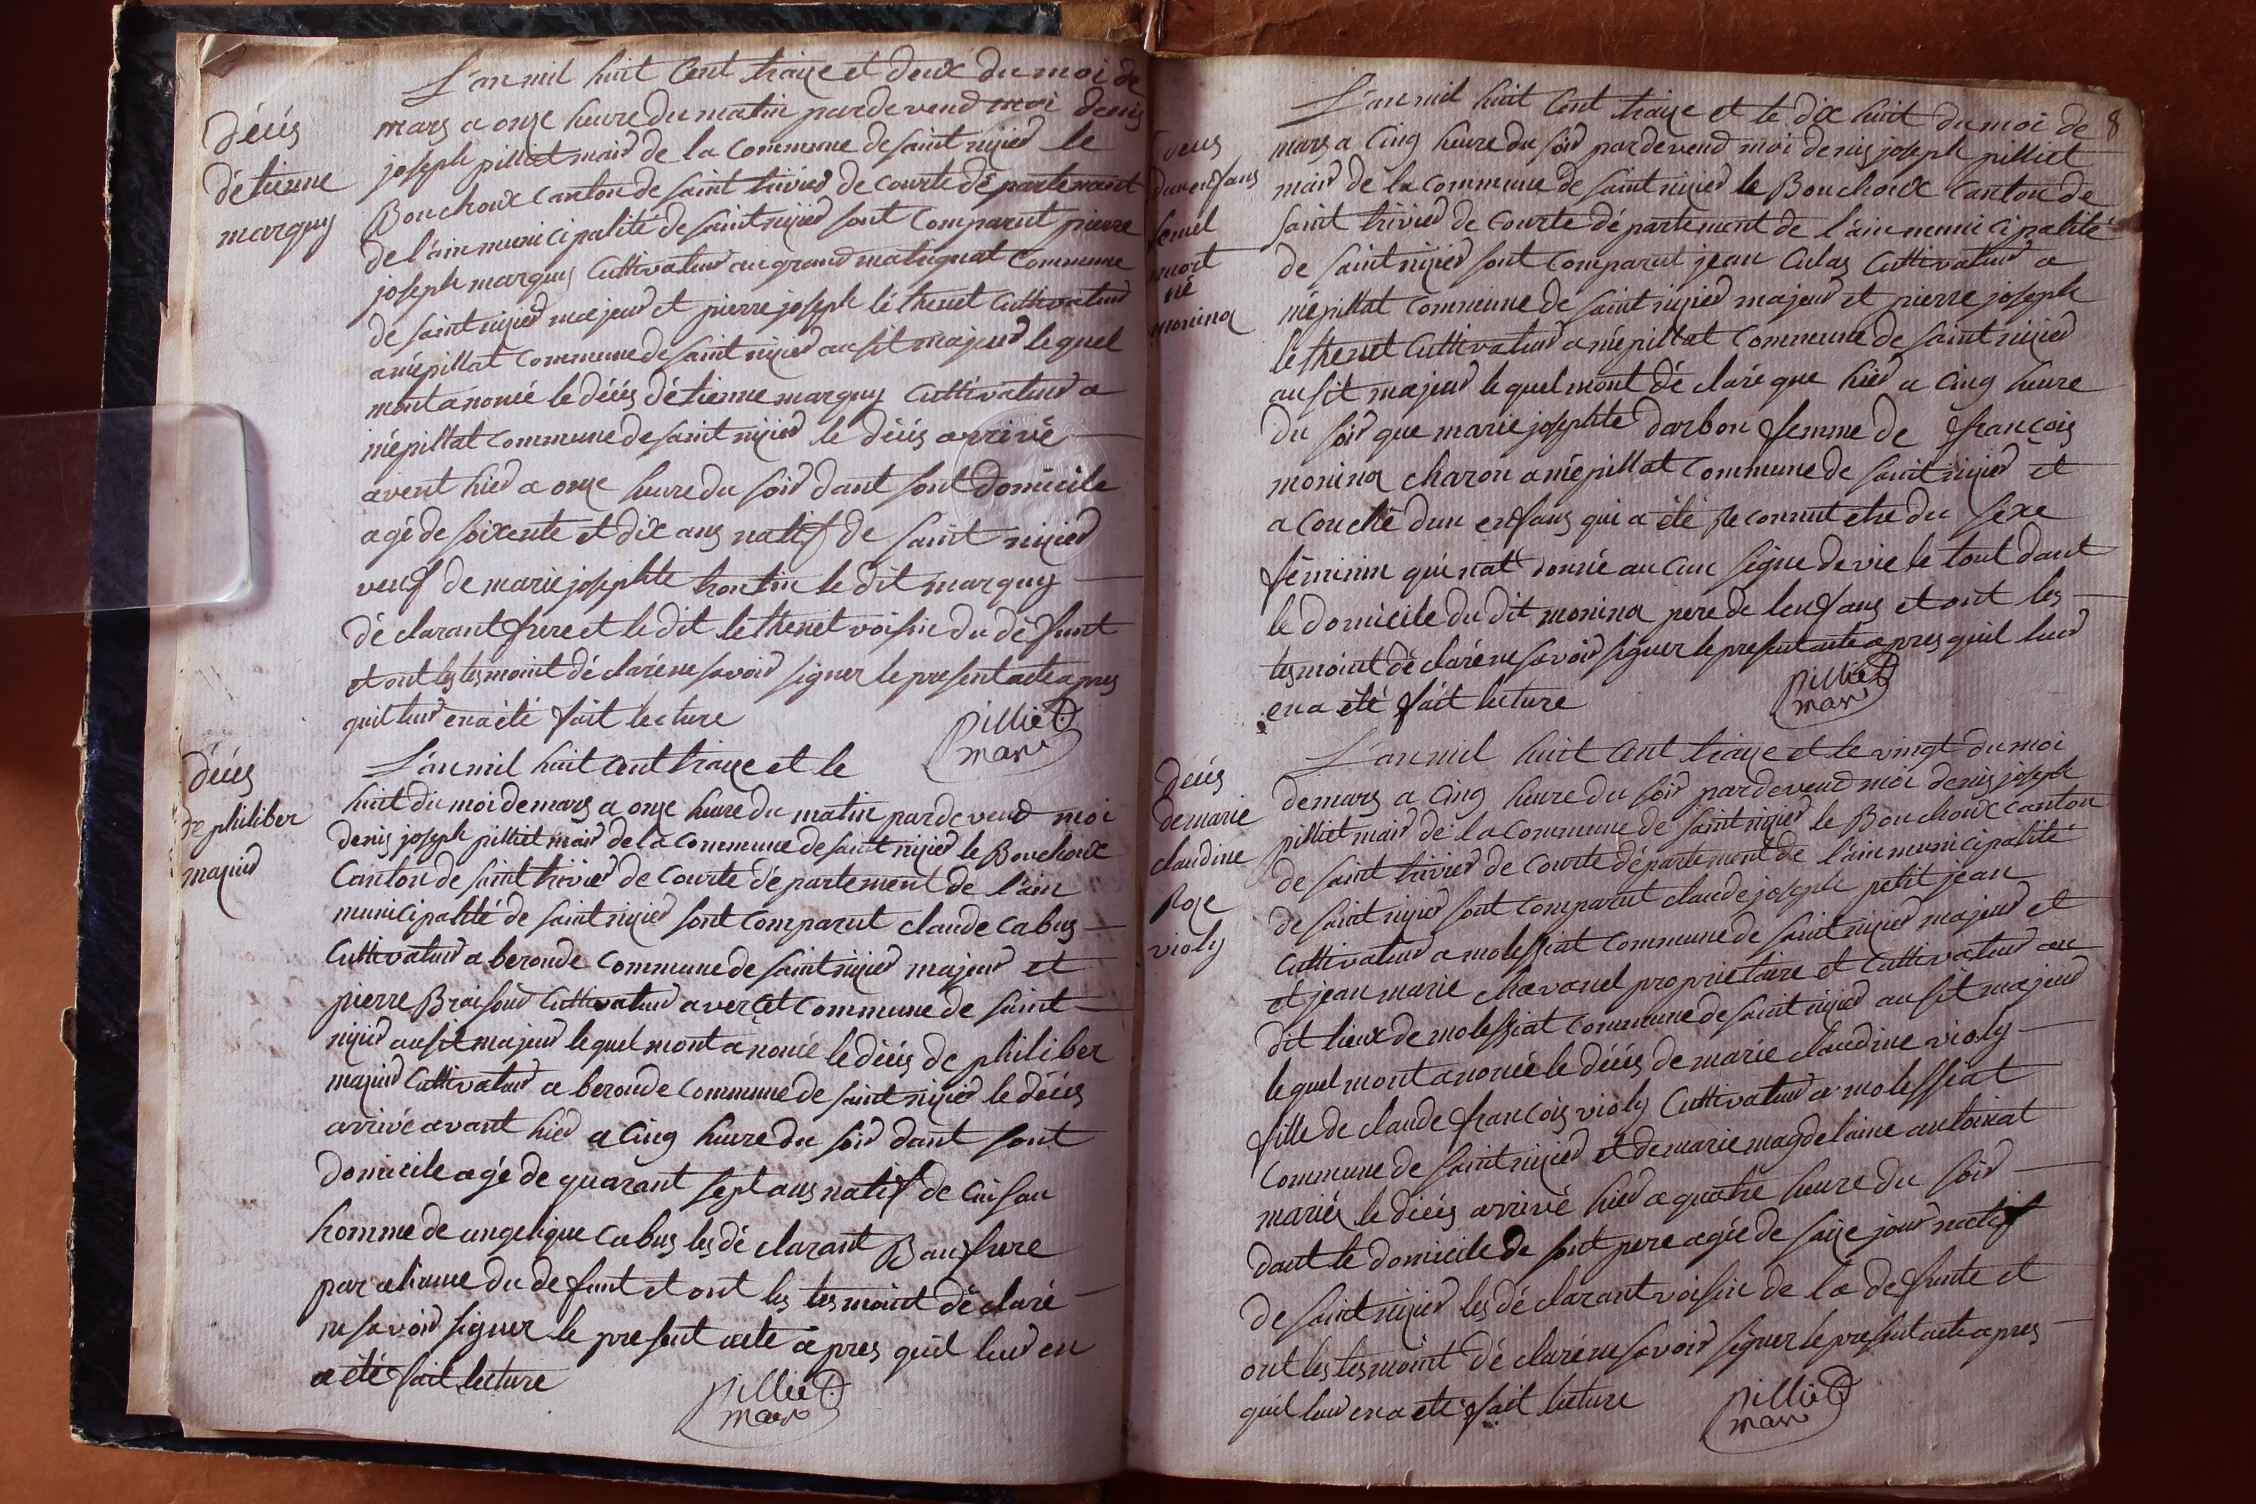 décés
détienne
marguy
L'an mil huit Cent traize et deux du moi de
mars a onze heure du matin pardevend moi denis
joseph pilliet maire de la commune de saint nizier le
Bouchoux canton de saint trivier de courte département
de l'ain municipalité de saint nizier sont comparut pierre
joseph marguy Cultivateur au grand matignat commune
de saint nizier majeur et pierre joseph léthenet Cultivateur
a népillat commune de saint nizier ausit majeur lequel
mont anoncé le décés détienne marguy Cultivateur a
népillat commune de saint nizier le décés arrivé
avent hier a onze heure du soir dant sont domicile
agé de soixente et dix ans natif de saint nizier
veuf de marie josephte trontin le dit marguy
déclarant frere et le dit léthenet voisin du défunt
et ont les tesmoint déclaré ne savoir signer le present acte apres
quil leur en a été fait lecture
Pilliet
mair
décés
de philiber
mazuir
L'an mil huit cent traize et le
huit du moi de mars a onze heure du matin pardevend moi
denis joseph pilliet mair de la commune de saint nizier le Bouchoux
Canton de saint trivier de courte département de l'ain
municipalité de saint nizier sont comparut claude cabus
Cultivateur a beronde commune de saint nizier majeur et
pierre Braisour Cultivateur a verget commune de saint
nizier ausit majeur lequel mont anoncé le décés de philiber
mazuir Cultivateur a beronde commune de saint nizier le décés
arrivé avant hier a cinq heure du soir dant sont
domicile agé de quarant sept ans natif de cuisau
homme de angelique cabus les déclarant Bau frere
par aliance du defunt et ont les tesmoint déclaré
ne savoir signer le present acte apres quil leur en
a été fait lecture
Pilliet
mair
8
décés
dun enfans
femel
mort
né
monina
L'an mil huit Cent traize et le dix huit du moi de
mars a cinq heure du soir pardevend moi denis joseph pilliet
mair de la commune de saint nizier le Bouchoux canton de
saint trivier de courte département de l'ain municipalité
de saint nizier sont comparut jean Culas Cultivateur a
népillat commune de saint nizier majeur et pierre joseph
léthenet Cultivateur a népillat commune de saint nizier
ausit majeur lequel mont déclaré que hier a cinq heure
du soir que marie josephte darbon femme de françois
monina charon a népillat commune de saint nizier et
a couché dun enfans qui a été reconnut etre du sexe
féminin qui nat donné aucun signe de vie le tout dant
le domicile du dit monina pere de lenfans et ont les
tesmoint déclaré ne savoir signer le present acte apres quil leur
en a été fait lecture
Pilliet
mair
décés
de marie
claudine
Roze
violy
L'an mil huit cent traize et le vingt du moi
de mars a cinq heure du soir pardevend moi denis joseph
pilliet mair de la commune de saint nizier le Bouchoux canton
de saint trivier de courte département de l'ain municipalité
de saint nizier sont comparut claude joseph petit jean
Cultivateur a molessiat commune de saint nizier majeur et
et jean marie chavanel proprietaire et cultivateur au
dit lieux de molessiat commune de saint nizier ausit majeur
lequel mont anoncé le décés de marie claudine violy
fille de claude françois violy Cultivateur a molessiat
commune de saint nizier et de marie magdelaine antoinat
mariés le décés arrivé hier a quatre heure du soir
dant le domicile de sont pere agée de saize jour natif
de saint nizier les déclarant voisin de la defunte et
ont les tesmoint déclaré ne savoir signer le present acte apres
quil leur en a été fait lecture
Pilliet
mair